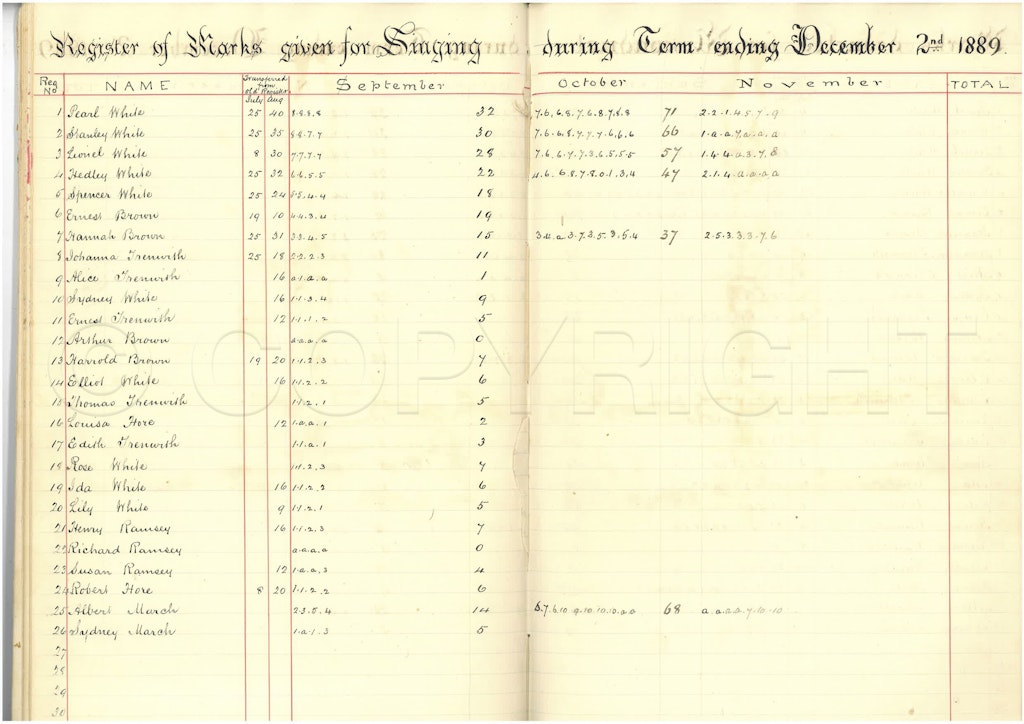 Register of Marks given for Singing during Term ending December 2nd 1889
Reg No NAME Transferred from old Register July Aug September October November TOTAL
1 Pearl White 25 40 8.8.8.8 32 7.6.6.8.7.6.8.7.8.8 71 2.2.1.4.5.7.9
2 Stanley White 25 35 8.8.7.7 30 66 1.a.a.7.a.a.a
3 Lionel White 8 30 7.7.7.7 28 7.6.6.7.7.3.6.5.5.5 57 1.4.4.a.3.7.8
4 Hedley White 25 32 6.6.5.5 22 4.6.6.8.7.8.0.1.3.4 47 2.1.4.a.a.a.a
5 Spencer White 25 24 5.5.4.4 18
6 Ernest Brown 19 10 4.4.3.4 19
7 Hannah Brown 25 31 3.3.4.5 15 3.4.a.3.7.3.5.3.5.4 37 2.5.3.3.3.7.6
8 Johanna Trenwith 25 18 2.2.2.3 11
9 Alice Trenwith 16 a.1.a.a 1
10 Sydney White 16 1.1.3.4 9
11 Ernest Trenwith 12 1.1.1.2 5
12 Arthur Brown a.a.a.a 0
13 Harrold Brown 19 20 1.1.2.3 7
14 Elliot White 16 1.1.2.2 6
15 Thomas Trenwith 1.1.2.1 5
16 Louisa Hore 12 1.a.a.1 2
17 Edith Trenwith 1.1.a.1 3
18 Rose White 1.1.2.3 7
19 Ida White 16 1.1.2.2 6
20 Lily White 9 1.1.2.1 5
21 Henry Ramsey 16 1.1.2.3 7
22 Richard Ramsey a.a.a.a 0
23 Susan Ramsey 12 1.a.a.3 4
24 Robert Hore 8 20 1.1.2.2 6
25 Albert March 2.3.5.4 14 5.7.6.10.9.10.10.10.a.a 68 a.a.a.a.7.10.10
26 Sydney March 1.a.1.3 5
27
28
29
30
© COPYRIGHT